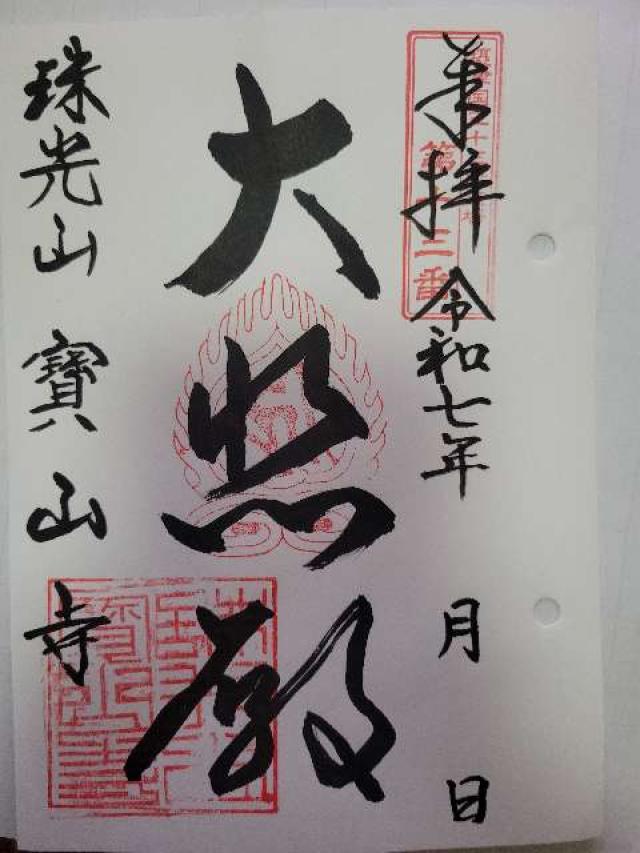 奉拝 令和七年 月 日
第十三番
大悲殿
珠光山 寶山寺